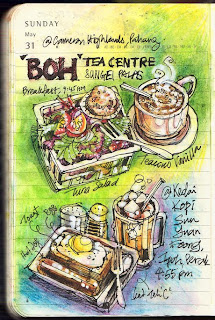 SUNDAY
May
31
@Cameron Highlands, Pahang
"BOH" TEA CENTRE
SUNGEI PALAS
Breakfast: 9:45 am
Teacino Vanilla
Tuna Salad
@Kedai
Kopi
Sun
Yuan
Foong,
Ipoh Perak
4:55 pm
Toast